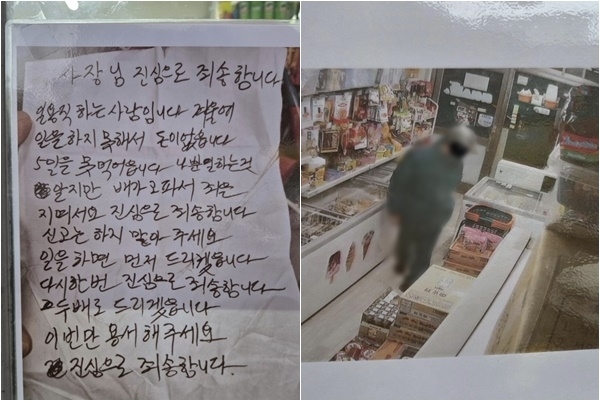 사장님 진심으로 죄송합니다
일용직 하는 사람입니다
일을 하지 못해서 돈이없읍니다
5일을 못먹어읍니다 나쁜일하는것
알지만 배가고파서
진심으로 죄송합니다
신고는 하지 말아 주세요
일을 하면 먼저 드리겟읍니다
다시한번 진심으로 죄송합니다
두배로 드리겟읍니다
이번만 용서해주세요
진심으로 죄송합니다.